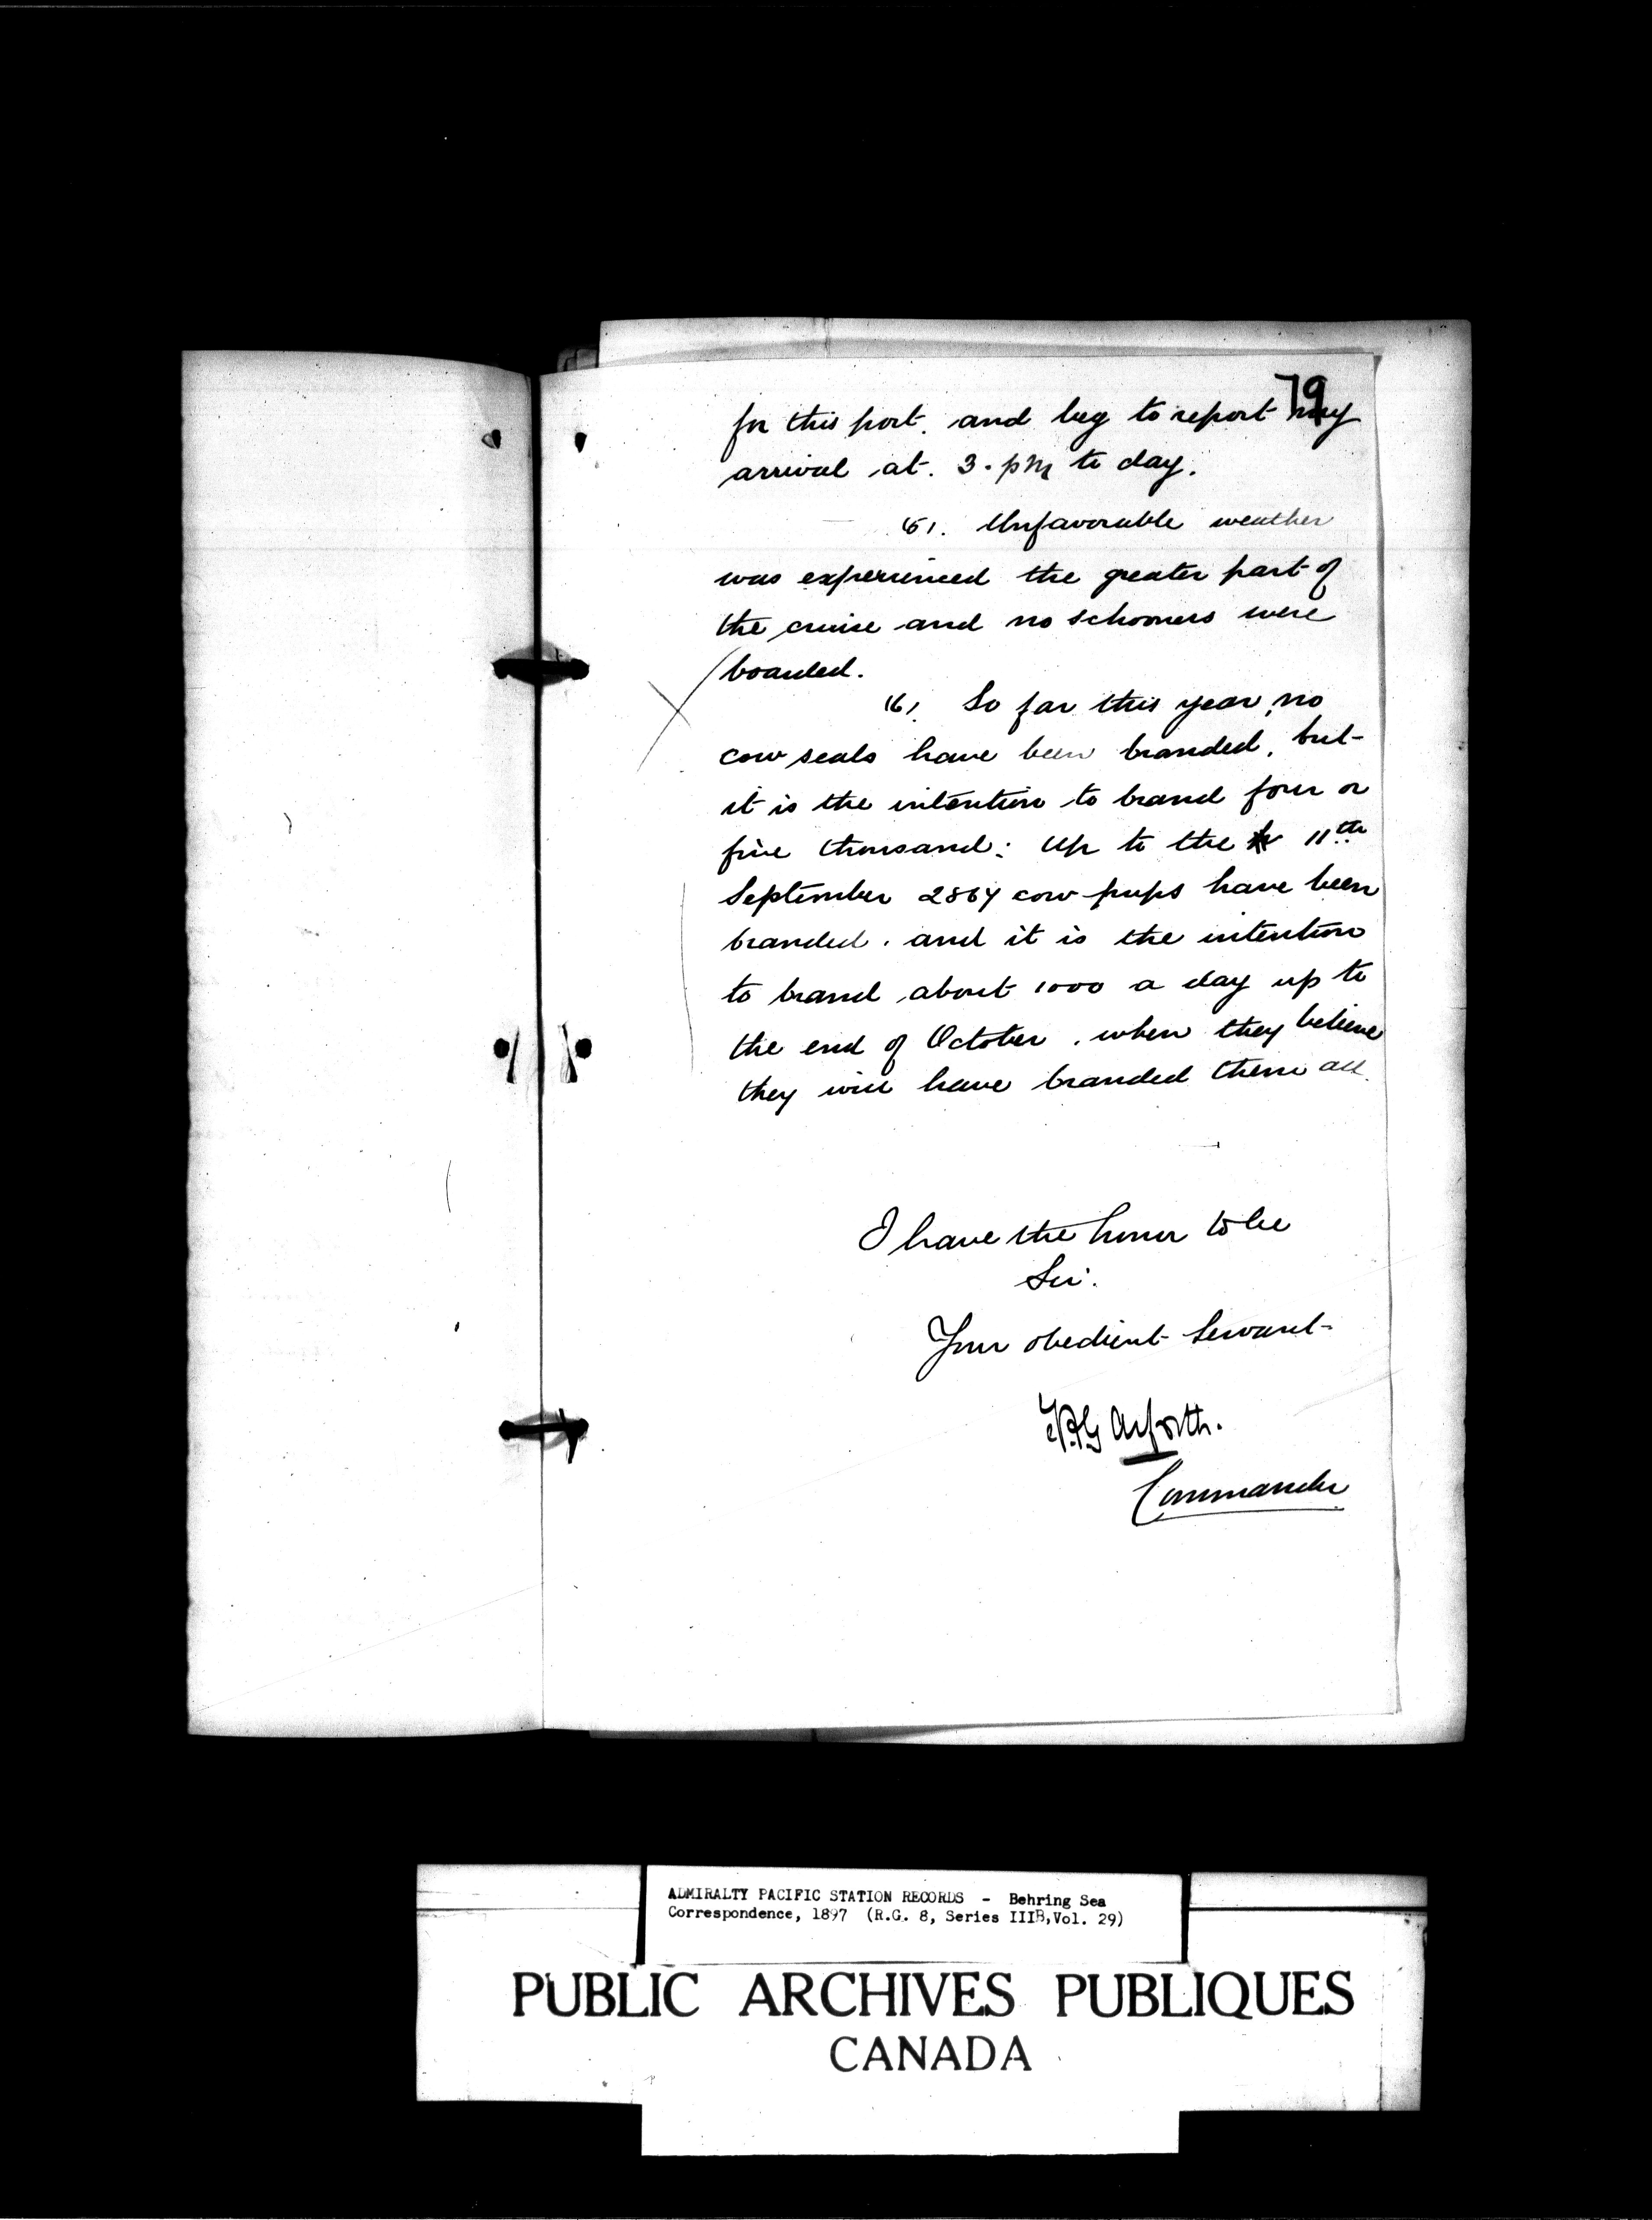 79
for this port. and beg to report my
arrival at. 3. pm to day.
(5). Unfavorable weather
was experienced the greater part of
the cruise and no schooners were
boarded.
(6). So far this year, no
cow seals have been branded, but
it is the intention to brand four or
five thousand: Up to the 11th
September 2867 cow pups have been
branded, and it is the intention
to brand about 1000 a day up to
the end of October, when they believe
they will have branded them all.
I have the honor to be
Sir.
Your obedient Servant
Commander
ADMIRALTY PACIFIC STATION RECORDS - Behring Sea
Correspondence, 1897 (R.G. 8, Series IIIB, Vol. 29)
PUBLIC ARCHIVES PUBLIQUES
CANADA